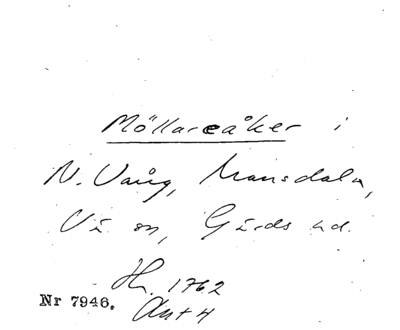 Möllareåker i
N. Vång, Mansdala,
Vä sn, Gärds hd.
Hh. 1762
Akt 4
Nr 7946.